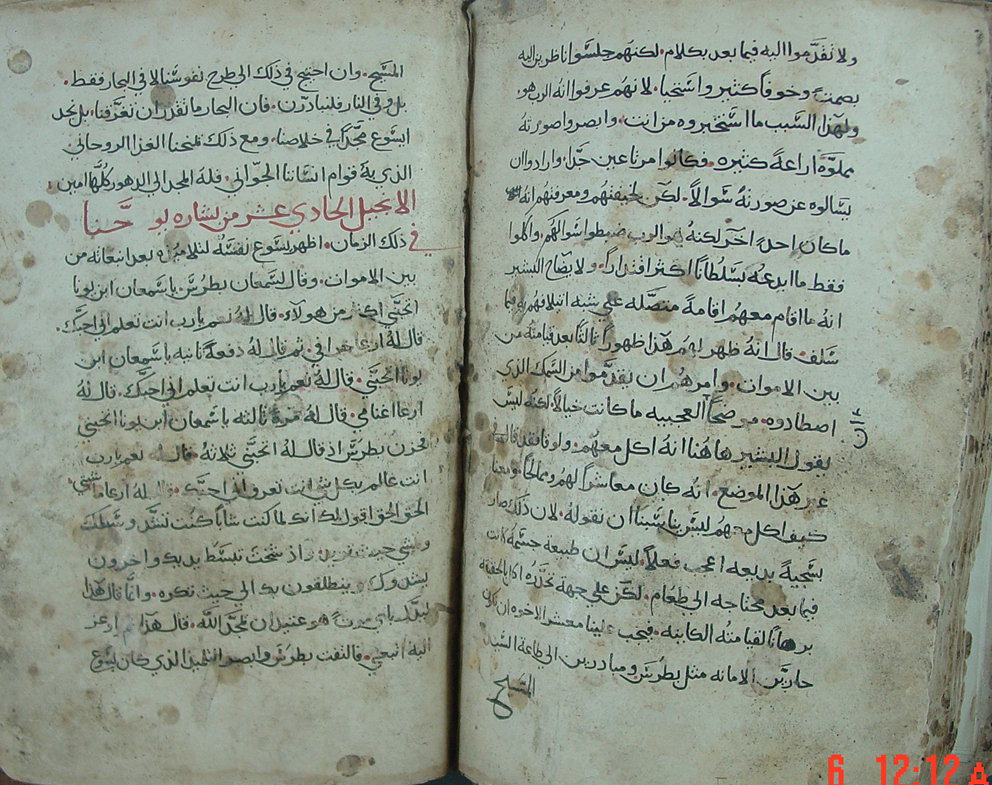 ولا تقدموا اليه فيما بعد بكلام. لكنهم جلسوا ناظرين اليه
بصمت وخوفا كثير واستحيا. لانهم عرفوا انه الرب هو.
ولهذا السبب ما استخبروه من انت. وابصروا صورته
مملوة اراعة كثيره. فكانوا مرتاعين جدا. وارادوا ان
يسالوه عن صورته سوالا. لكن لخيفتهم ومعرفتهم انه
ما كان احدا اخر لكنه هو الرب ضبطوا سوالهم. واكلوا
فقط ما ابدعه بسلطانا اكثر اقتدارا. ولايضاح البشير
انه ما اقام معهم اقامة متصله على شبه ايتلافهم فيما
سلف. قال انه ظهر لهم هذا ظهورا ثالثا بعد قيامته من
بين الاموات. وامرهم ان يقدموا من السمك الذي
اصطادوه. موضحا العجيبه ما كانت خيالا. لكنه ليس
يقول البشير هاهنا انه اكل معهم. ولوقا فقد قال في
غير هذا الموضع. انه كان معاشرا لهم وممالحا. ومعنا
كيف اكل معهم ليس يناسبنا ان نقوله. لان ذلك صار
بسجية بديعه اعجب فعلا. ليس ان طبيعة جسمه كانت
فيما بعد محتاجه الى طعام. لكن على جهة تحدره
برهانا لقيامته الكاينه. فيجب علينا معشر الاخوه ان نكون
حارين الامانه مثل بطرس ومبادرين الى طاعة السيد
المسيح
المسيح. وان احتيج في ذلك الى طرح نفوسنا لا في البحار فقط.
بل وفي النار فلنبادرن. فان البحار ما تقدر ان تغرقنا. بل نجد
ايسوع مجدا في خلاصنا. ومع ذلك يمنحنا الغذا الروحاني
الذي به قوام انساننا الجواني. فله المجد الى الدهور كلها امين
الانجيل الحادي عشر من بشاره يوحنا
في ذلك الزمان. اظهر يسوع نفسه لتلاميذه بعد انبعاثه من
بين الاموات. وقال لسمعان بطرس يا سمعان ابن يونا
اتحبني اكثر من هولاء. قال له نعم يا رب انت تعلم اني احبك.
قال له ارع خرافي. ثم قال له دفعة ثانيه يا سمعان ابن
يونا اتحبني. قال له نعم يا رب انت تعلم اني احبك. قال له
ارع اغنامي. قال له مرة ثالثه يا سمعان ابن يونا اتحبني
فحزن بطرس اذ قال له اتحبني ثلاثة. قال له نعم يا رب
انت عالم بكل شي انت تعرف اني احبك. قال له ارع
الحق الحق اقول لك انك لما كنت شابا كنت تشد وسطك
وتمشي حيث تريد. واذ شخت تبسط يديك واخرون
يشدونك وينطلقون بك الى حيث تكره. وانما قال هذا
ليدل باي ميتة هو عتيد ان يمجد الله. قال هذا
اليه اتبعني. فالتفت بطرس وابصر التلميذ الذي كان يسوع
6 12:12